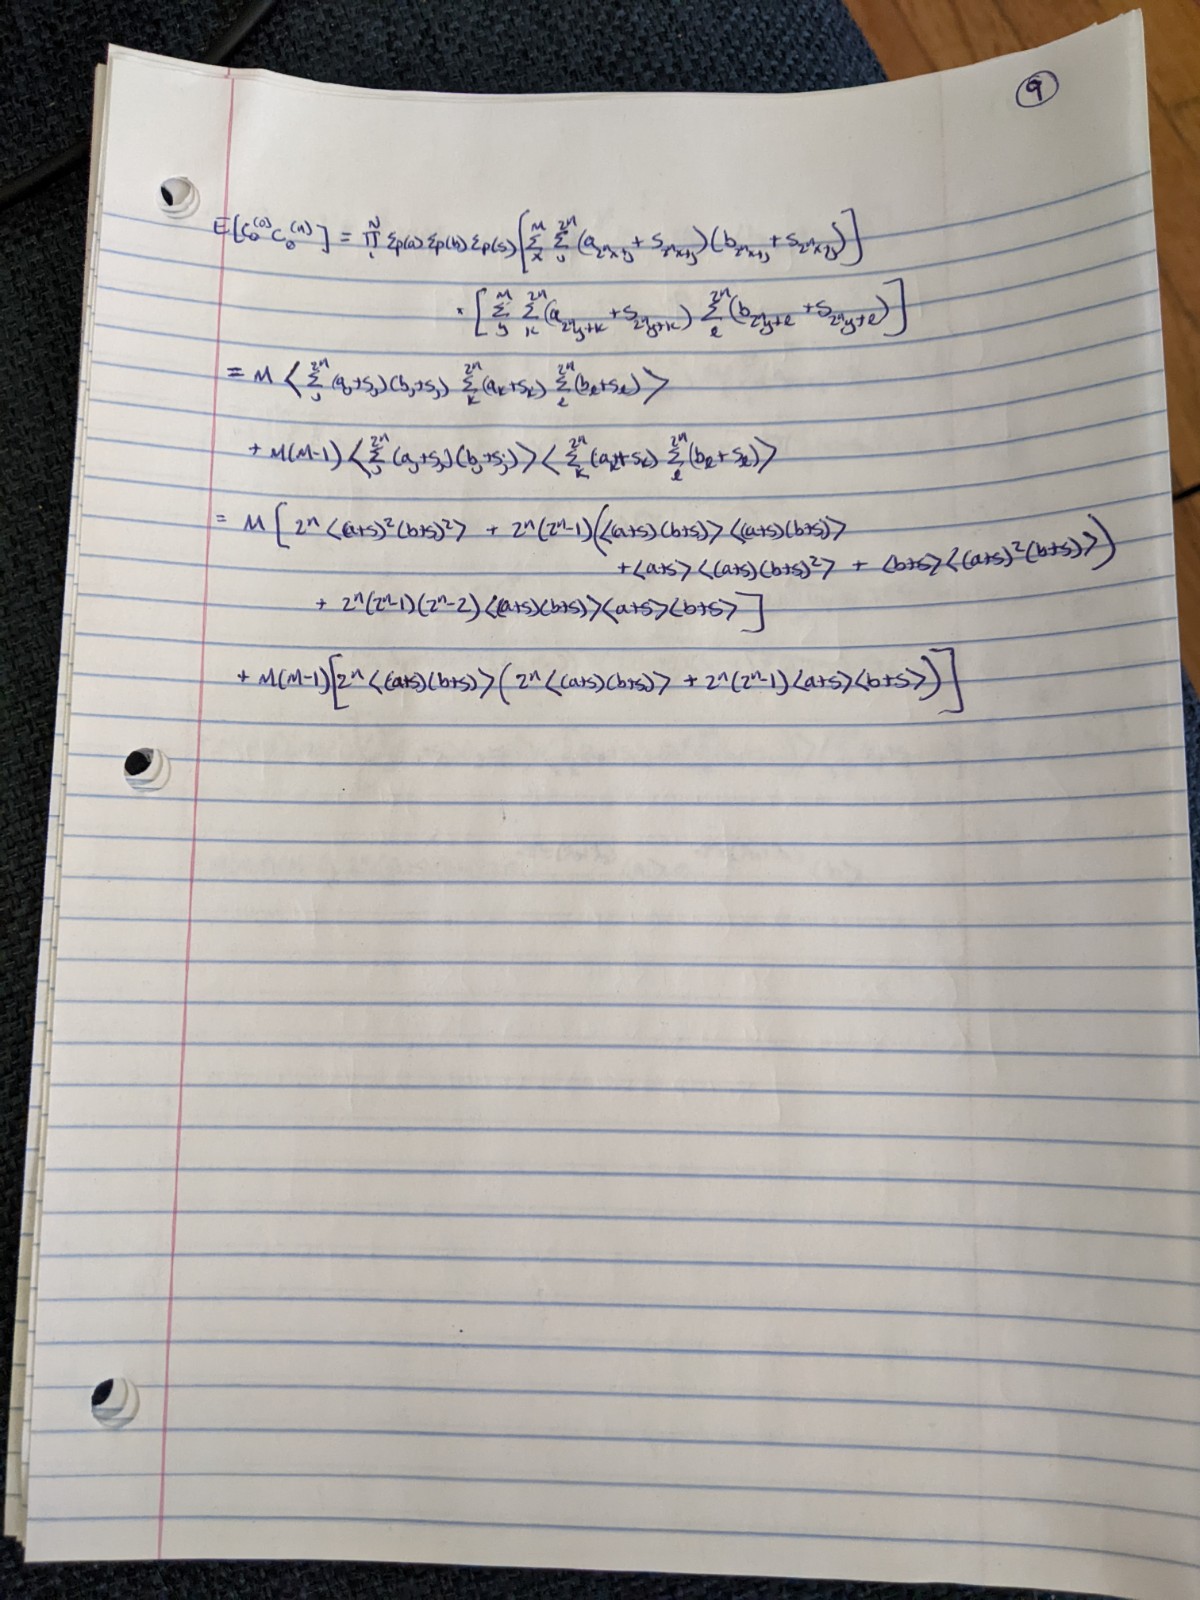 9
E[C_0^{(0)} C_0^{(n)}] = \prod_i^N Σp(a) Σp(b) Σp(s) [ \sum_x^M \sum_j^{2^n} (a_{2^n x+j} + s_{2^n x+j})(b_{2^n x+j} + s_{2^n x+j}) ]
· [ \sum_y^M \sum_k^{2^n} (a_{2^n y+k} + s_{2^n y+k}) \sum_ℓ^{2^n} (b_{2^n y+ℓ} + s_{2^n y+ℓ}) ]
= M ⟨ \sum_j^{2^n} (a_j+s_j)(b_j+s_j) \sum_k^{2^n} (a_k+s_k) \sum_ℓ^{2^n} (b_ℓ+s_ℓ) ⟩
+ M(M-1) ⟨ \sum_j^{2^n} (a_j+s_j)(b_j+s_j) ⟩ ⟨ \sum_k^{2^n} (a_k+s_k) \sum_ℓ^{2^n} (b_ℓ+s_ℓ) ⟩
= M [ 2^n ⟨(a+s)^2(b+s)^2⟩ + 2^n(2^n-1)( ⟨(a+s)(b+s)⟩ ⟨(a+s)(b+s)⟩
+ ⟨a+s⟩ ⟨(a+s)(b+s)^2⟩ + ⟨b+s⟩ ⟨(a+s)^2(b+s)⟩ )
+ 2^n(2^n-1)(2^n-2) ⟨(a+s)(b+s)⟩⟨a+s⟩⟨b+s⟩ ]
+ M(M-1) [ 2^n ⟨(a+s)(b+s)⟩ ( 2^n ⟨(a+s)(b+s)⟩ + 2^n(2^n-1) ⟨a+s⟩⟨b+s⟩ ) ]